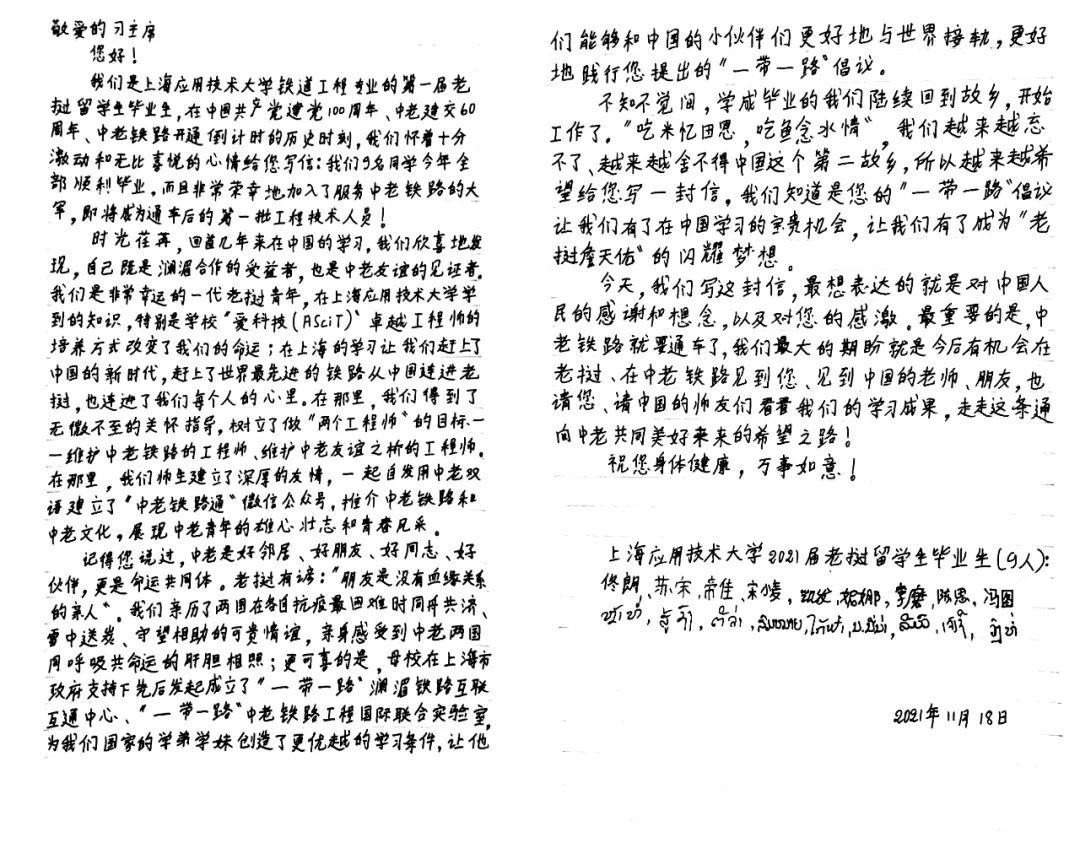 敬爱的习主席
您好！
我们是上海应用技术大学铁道工程专业的第一届老
挝留学生毕业生，在中国共产党建党100周年、中老建交60
周年、中老铁路开通倒计时的历史时刻，我们怀着十分
激动和无比喜悦的心情给您写信：我们9名同学今年全
部顺利毕业，而且非常荣幸地加入了服务中老铁路的大
军，即将成为通车后的第一批工程技术人员！
时光荏苒，回首几年来在中国的学习，我们欣喜地发
现，自己既是澜湄合作的受益者，也是中老友谊的见证者。
我们是非常幸运的一代老挝青年，在上海应用技术大学学
到的知识，特别是学校“爱科技(ASciT)”卓越工程师的
培养方式改变了我们的命运；在上海的学习让我们赶上了
中国的新时代，赶上了世界最先进的铁路从中国连进老
挝，也连进了我们每个人的心里。在那里，我们得到了
无微不至的关怀指导，树立了做“两个工程师”的目标—
—维护中老铁路的工程师、维护中老友谊之桥的工程师。
在那里，我们师生建立了深厚的友情，一起自发用中老双
语建立了“中老铁路通”微信公众号，推介中老铁路和
中老文化，展现中老青年的雄心壮志和青春风采。
记得您说过，中老是好邻居、好朋友、好同志、好
伙伴，更是命运共同体。老挝有谚：“朋友是没有血缘关系
的亲人”。我们亲历了两国在各自抗疫最困难时同舟共济、
雪中送炭、守望相助的可贵情谊，亲身感受到中老两国
同呼吸共命运的肝胆相照；更可喜的是，母校在上海市
政府支持下先后发起成立了“一带一路”澜湄铁路互联
互通中心、“一带一路”中老铁路工程国际联合实验室，
为我们国家的学弟学妹创造了更优越的学习条件，让他
们能够和中国的小伙伴们更好地与世界接轨，更好
地践行您提出的“一带一路”倡议。
不知不觉间，学成毕业的我们陆续回到故乡，开始
工作了。“吃米忆田恩，吃鱼念水情”，我们越来越忘
不了、越来越舍不得中国这个第二故乡，所以越来越希
望给您写一封信。我们知道是您的“一带一路”倡议
让我们有了在中国学习的宝贵机会，让我们有了成为“老
挝詹天佑”的闪耀梦想。
今天，我们写这封信，最想表达的就是对中国人
民的感谢和想念，以及对您的感激。最重要的是，中
老铁路就要通车了，我们最大的期盼就是今后有机会在
老挝、在中老铁路见到您、见到中国的老师、朋友，也
请您、请中国的师友们看看我们的学习成果，走走这条通
向中老共同美好未来的希望之路！
祝您身体健康，万事如意！
上海应用技术大学2021届老挝留学生毕业生(9人)：
佟朗，苏宋，帝佳，宋凌，
2021年11月18日